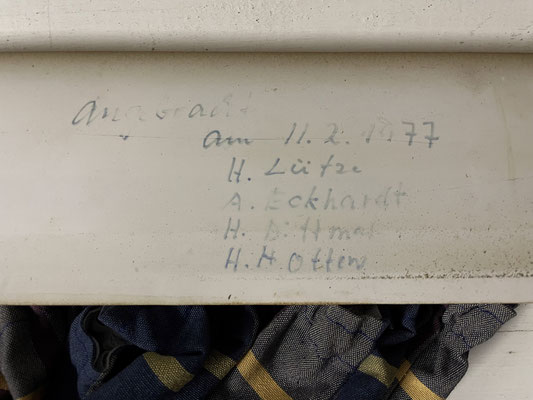 Angebracht
am 11.2.1977
H. Lütze
A. Eckhardt
H. Dittmar
H. H. Ottens